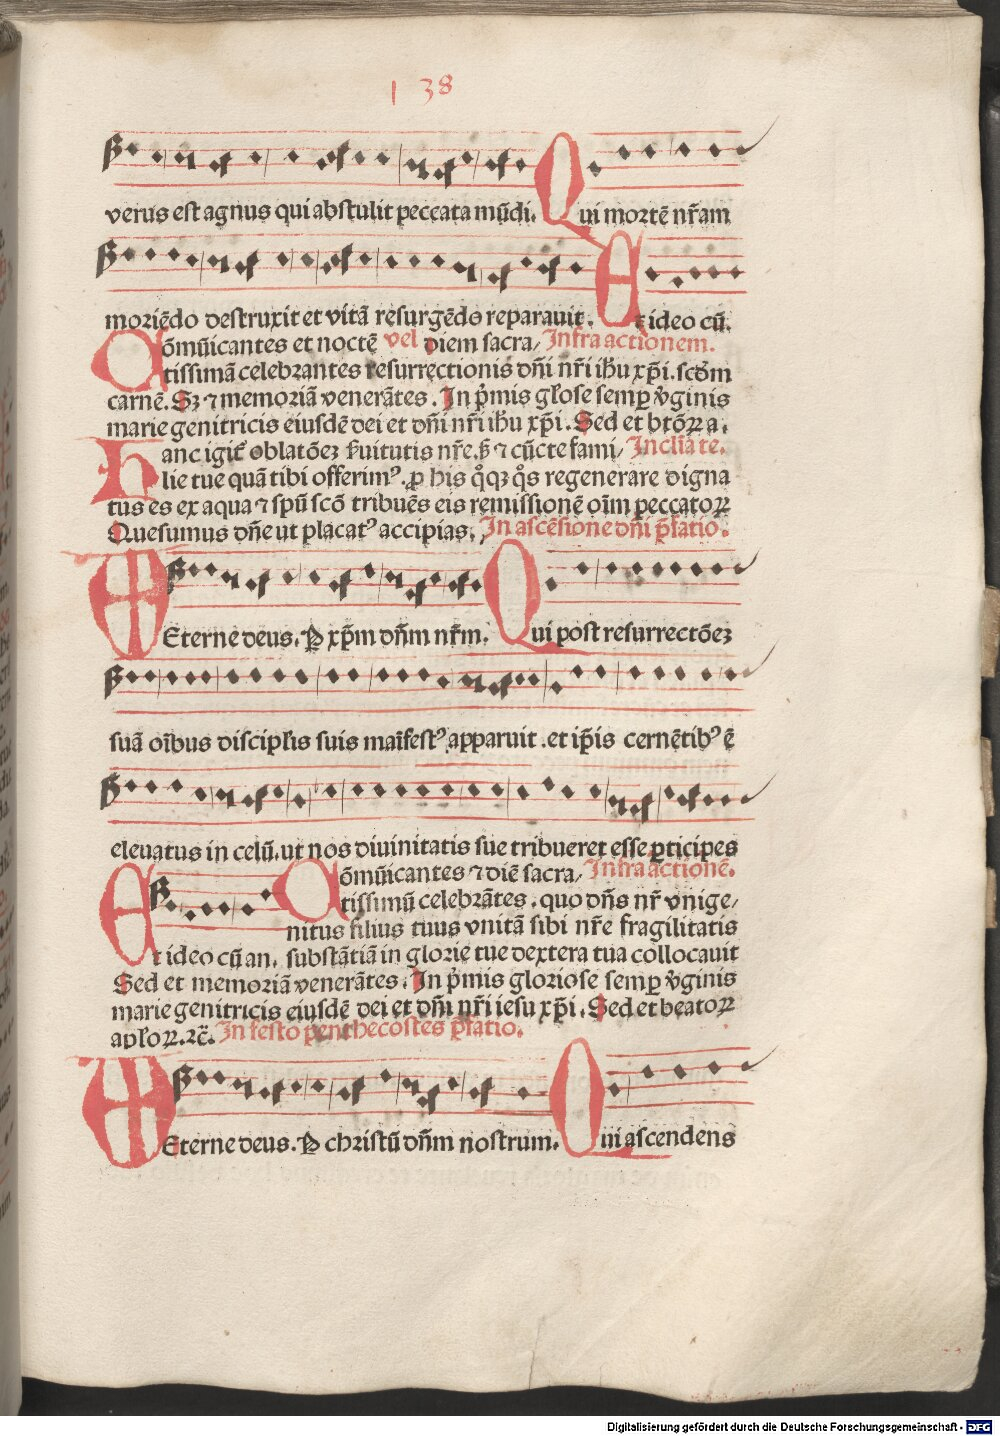 138
verus est agnus qui abstulit peccata mūdi. Qui mortē nr̄am
moriēdo destruxit et vitā resurgēdo reparauit. Et ideo cū.
Cōmūicantes et noctē vel diem sacra/ Infra actionem.
tissimā celebrantes resurrectionis dn̄i nr̄i ihū xp̄i. scd̄m
carnē. Sꝫ ⁊ memoriā venerātes. In p̄mis gl̄ose semꝑ v̄ginis
marie genitricis eiusdē dei et dn̄i nr̄i ihū xp̄i. Sed et btōꝝ a.
Hanc igit᷑ oblatōeꝫ ẜuitutis nr̄e. sꝫ ⁊ cūcte fami/ In cl̄ia te.
lie tue quā tibi offerimꝰ. ꝓ his qͦꝗꝫ qͦs regenerare digna
tus es ex aqua ⁊ spū scō tribuēs eis remissionē oīm peccatoꝝ
Quesumus dn̄e ut placatꝰ accipias. In ascēsione dn̄i p̄fatio.
Eterne deus. P xp̄m dn̄m nr̄m. Qui post resurrectōeꝫ
suā oībus discipl̄is suis maīfestꝰ apparuit. et ip̄is cernētibꝰ ē
eleuatus in celū. ut nos diuinitatis sue tribueret esse ꝑticipes
Cōmūicantes ⁊ diē sacra/ Infra actionē.
tissimū celebrātes. quo dn̄s nr̄ vnige/
nitus filius tuus vnitā sibi nr̄e fragilitatis
Et ideo cū an. substātiā in glorie tue dextera tua collocauit
Sed et memoriā venerātes. In p̄mis gloriose semꝑ v̄ginis
marie genitricis eiusdē dei et dn̄i nr̄i iesu xp̄i. Sed et beatoꝝ
apl̄oꝝ. ⁊c̄. In festo penthecostes p̄fatio.
Eterne deus. P christū dn̄m nostrum. Qui ascendens
Digitalisierung gefördert durch die Deutsche Forschungsgemeinschaft - DFG